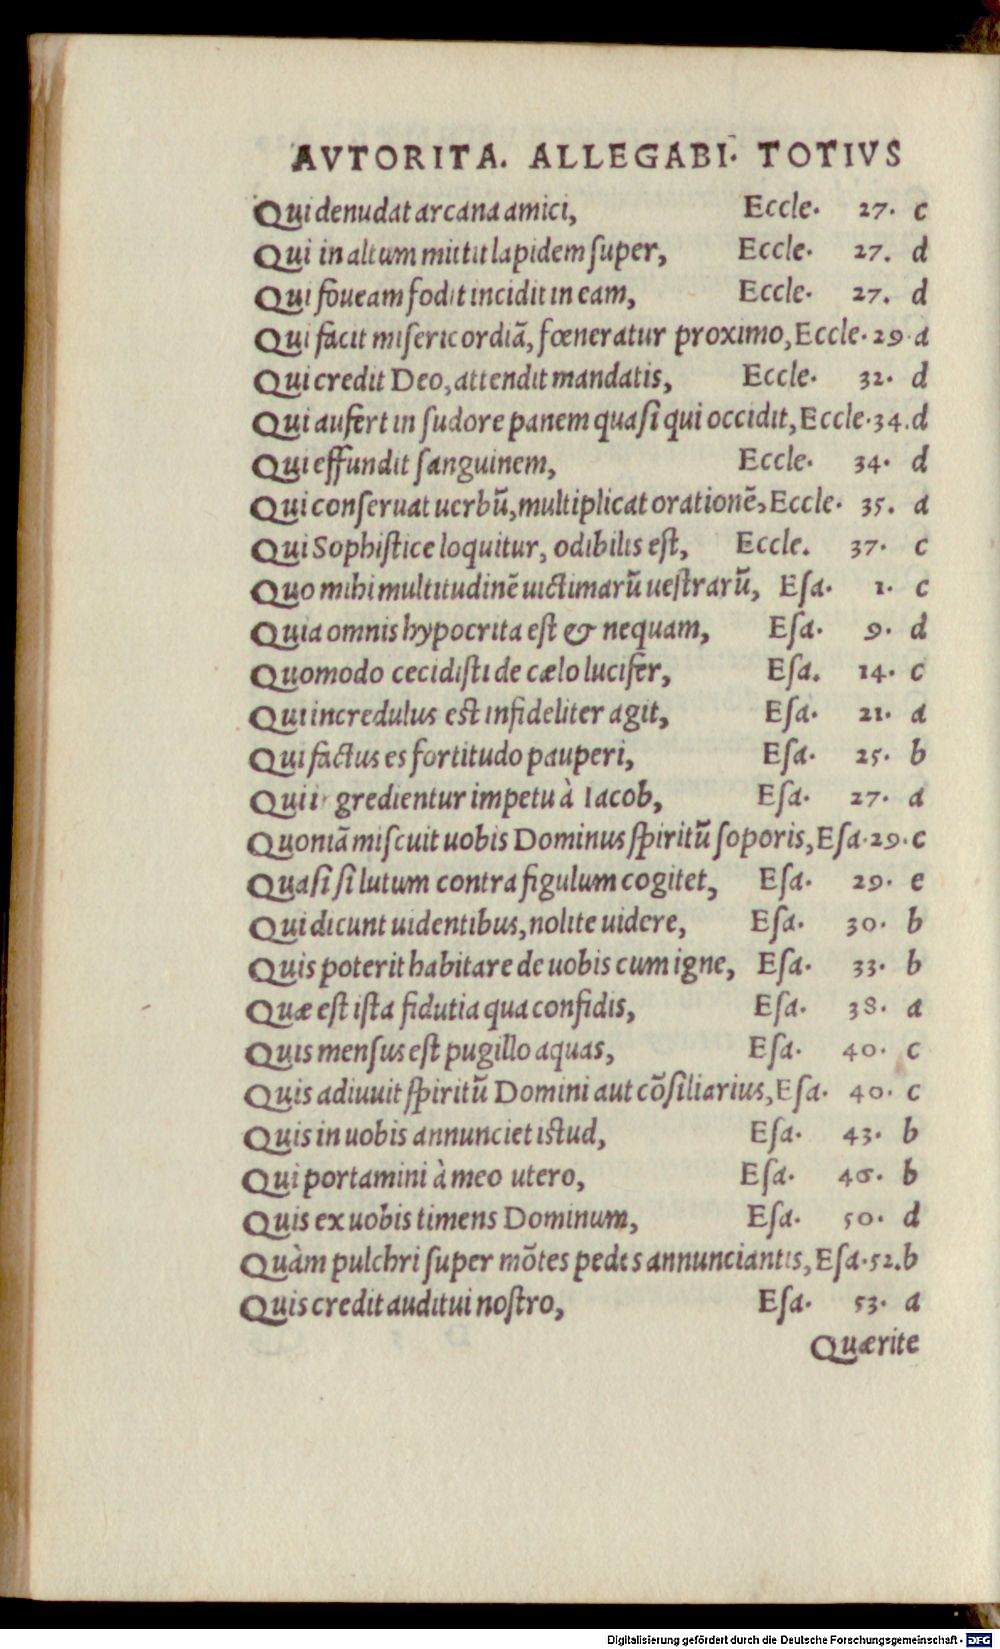 AVTORITA. ALLEGABI. TOTIVS
Qui denudat arcana amici, Eccle. 27. c
Qui in altum mittit lapidem ſuper, Eccle. 27. d
Qui foueam fodit incidit in eam, Eccle. 27. d
Qui facit miſericordiã, fœneratur proximo, Eccle. 29. a
Qui credit Deo, attendit mandatis, Eccle. 32. d
Qui aufert in ſudore panem quaſi qui occidit, Eccle. 34. d
Qui effundit ſanguinem, Eccle. 34. d
Qui conſeruat uerbũ, multiplicat orationẽ, Eccle. 35. a
Qui Sophiſtice loquitur, odibilis eſt, Eccle. 37. c
Quo mihi multitudinẽ uictimarũ ueſtrarũ, Eſa. 1. c
Quia omnis hypocrita eſt & nequam, Eſa. 9. d
Quomodo cecidiſti de cælo lucifer, Eſa. 14. c
Qui incredulus eſt infideliter agit, Eſa. 21. a
Qui factus es fortitudo pauperi, Eſa. 25. b
Qui gredientur impetu à Iacob, Eſa. 27. a
Quoniã miſcuit uobis Dominus ſpiritũ ſoporis, Eſa. 29. c
Quaſi ſi lutum contra figulum cogitet, Eſa. 29. e
Qui dicunt uidentibus, nolite uidere, Eſa. 30. b
Quis poterit habitare de uobis cum igne, Eſa. 33. b
Quæ eſt iſta fidutia qua confidis, Eſa. 38. a
Quis menſus eſt pugillo aquas, Eſa. 40. c
Quis adiuuit ſpiritũ Domini aut cõſiliarius, Eſa. 40. c
Quis in uobis annunciet iſtud, Eſa. 43. b
Qui portamini à meo utero, Eſa. 46. b
Quis ex uobis timens Dominum, Eſa. 50. d
Quàm pulchri ſuper mõtes pedes annunciantis, Eſa. 52. b
Quis credit auditui noſtro, Eſa. 53. a
Quærite
Digitalisierung gefördert durch die Deutsche Forschungsgemeinschaft - DFG